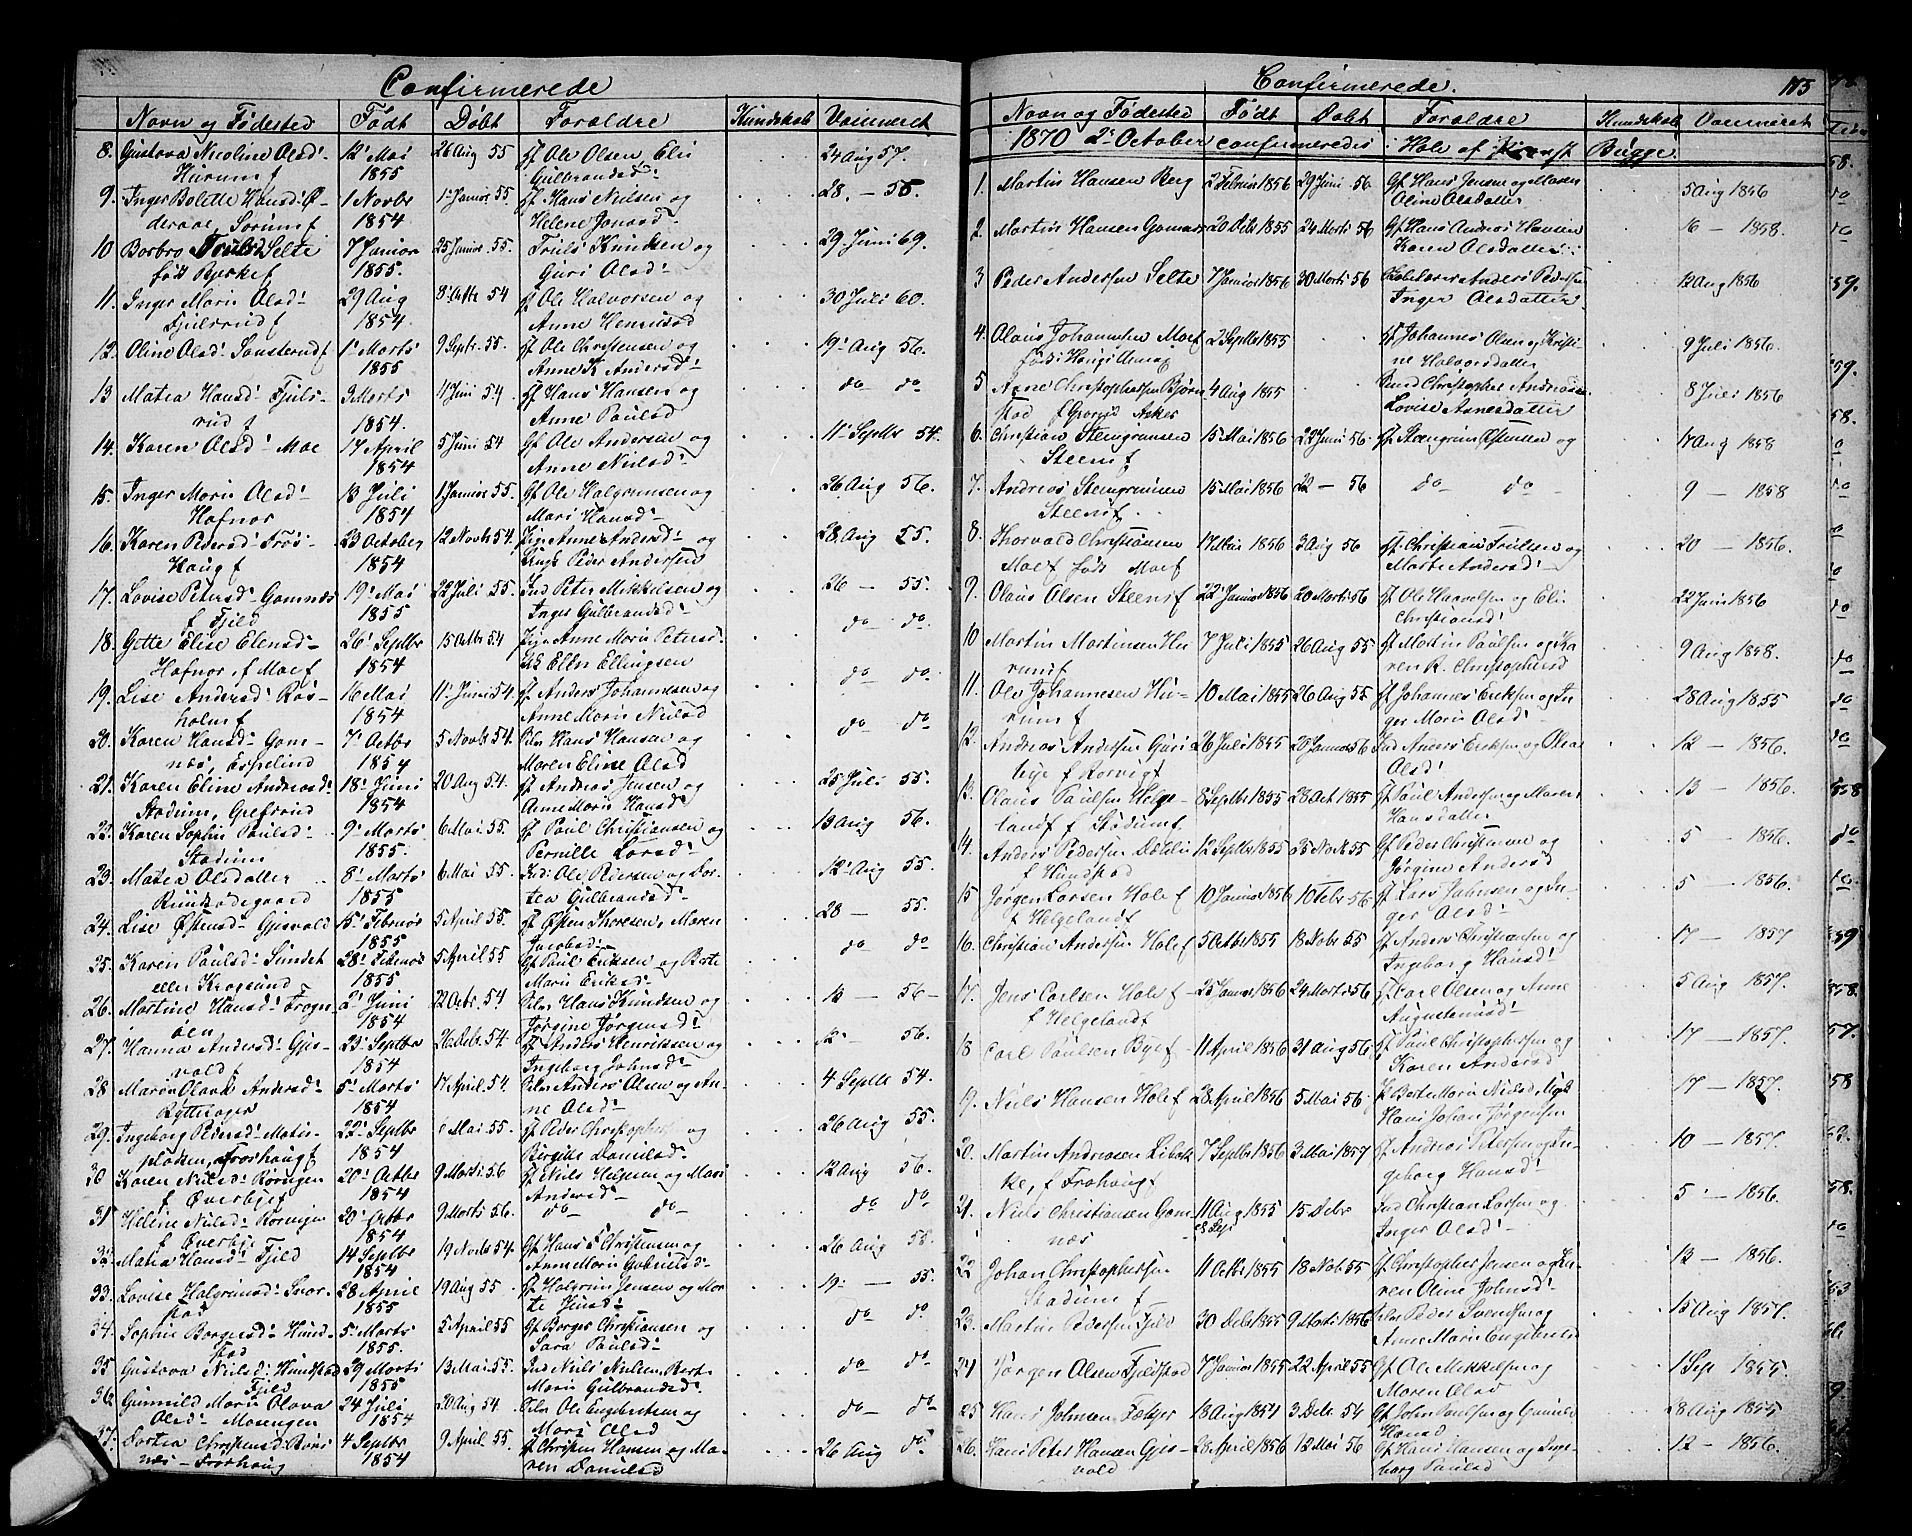 Confirmerede
Navn og Födested Födt Döbt Foraldre Kundskab Vaccineret
8. Gustava Nicoline Olsd: 12 Mai 26 Aug 55 gf Ole Olsen, Eli 24 Aug 57.
Hurum f 1855 Gulbrandsd:
9. Inger Bolette Hansd: Ø- 1 Novbr 1 Januar 55 gf Hans Nielsen og 28. — 55.
1854 Helene Jonsd:
10 Borbro Trulsd Selte 7 Januar 25 Januar 55. Truls Knudsen og 29 Juni 69.
föd Bjerke f 1855. Guri Olsd:
11. Inger Marie Olsd: 29 Aug 8 Octbr 54 gf Ole Halvorsen og 30 Juli 60.
Fjulsrud f 1854. Anne Henriksd
12. Oline Olsd: 1 Marts 9 Septr. 55. gf Ole Christensen og 19 Aug 56.
1855 Anne K Andersd:
13 Mathea Hansd: Fjuls- 3 Marts 4 Juni 54 gf Hans Hansen og do do
rud f 1854. Anne Paulsd
14. Karen Olsd: Moe 17 April 5 Juni 54 gf Ole Andersen og 11 Septbr 54.
1854 Anne Nielsd:
15. Inger Marie Olsd: 13 Juli 1 Januar 55. gf Ole Halgrimsen og 26 Aug 56.
Hafnor 1854 Mari Hansd:
16. Karen Pedersd: Frös- 23 October 12 Novbr 54. Pige Anne Andersd: og 28 Aug 55.
Haug f 1854 Ungk Peder Andersen
17. Lovise Petersd: Gomnæs 19 Mai 22 Juli 55. Ind Peter Mikkelsen og 26 — 55.
f Fjeld 1855 Inger Gulbrandsd:
18. Gette Elise Elensd: 26 Septbr 15 Octbr 54 Pige Anne Marie Petersd: do do
Hafnor, f Moe f 1854 Elen Ellingsen
19. Lise Andersd: Ros- 16 Mai 11 Juni 54. gf Anders Johannesen og do do
holm f 1854 Anne Marie Nielsd
20. Karen Hansd: Gom- 7 Octbr 5 Novbr 54. Hans Hansen og do do
næs, Espelind 1854 Maren Eline Olsd
21. Karen Eline Andreasd: 18 Juni 20 Aug 54. gf Andreas Jensen og 25 Juli 55.
Stadum, Grefsrud 1854 Anne Marie Hansd:
22. Karen Sophie Paulsd: 9 Marts 6 Mai 55. gf Paul Christiansen og 13 Aug 56.
Stadum 1855. Pernille Larsd:
23. Mathea Olsdatter 8 Marts 6 Mai 55. Ind: Ole Pedersen og Dor- 12 Aug 55.
1855 tea Gulbrandsd:
24. Lise Østensd: Gjesvold 15 Februar 5 April 55. gf Østen Thoresen, Maren 28 — 55.
1855 Jacobsd:
25. Karen Paulsd: Sundet 28 Februar 5 April 55 gf Paul Eriksen og Berte do do
eller Krogsund 1855 Marie Eriksd:
26. Martine Hansd: Frogn- 2 Juni 22 Octbr. 54. Hans Knudsen og 13 — 56 -
öen 1854 Jørgine Jørgensd:
27. Hanna Andersd: Gjes- 23 Septbr 26 Debr. 54. gf Anders Henriksen og 12 — 56.
vold f 1854 Ingeborg Johnsd:
28 Maren Olava Andersd: 5 Marts 17 April. 54. Anders Olsen og An- 4 Septbr 54.
Rytterager 1854 ne Olsd:
29. Ingeborg Pedersd: 22 Septbr 6 Mai 55. gf Peder Christophersen og 26 Aug 55.
Frøshaug f 1854 Birgitte Danielsd:
30 Karen Nielsd: Rörvigen 20 Octbr 9 Marts 56 gf Niels Helgesen og Mari 12 Aug 56.
f Øverbye f 1854 Andersd:
31 Helene Nielsd: Rörvigen 20 Octbr 9 Marts 56. do do do do
f Øverbye 1854
32. Mathea Hansd: Fjeld 14 Septbr 19 Novbr 54. gf Hans Christensen og 26 Aug 55.
1854 Anne Marie Gabrielsd:
33. Lovise Halgrimsd: Snar- 28 April 19 Aug 55 gf Halgrim Jensen og Mar- 19. — 55.
stad 1855 te Jensd:
34. Sophie Borgersd: Hund- 5 Marts 5 April 55 gf Borger Christiansen og do do
stad 1855. Sara Paulsd:
35 Gustava Nielsd: Hundstad 29 Marts 13 Mai 55. Ind Niels Nielsen, Berte do do
Fjeld 1855 Marie Gulbrandsd:
36 Gunnild Marie Olava 24 Juli 20 Aug 54. Ole Engebretsen og do do
Olsd: Mosengen 1854 Mari Olsd
37. Dortea Christensd: 4 Septbr 9 April 55. gf Christen Hansen og Ma- 26 Aug do
næs - Frøshaug 1854 ren Danielsd
Confirmerede. 175
Navn og Födested Födt Dobt Foraldre Kundskab Vaccineret
1870 2 October confirmeredes i Hole af Bugge
1. Martin Hansen Berg 2 Februar 1856 29 Juni 56 Gf Hans Jensen og Maren 5 Aug 1856
Oline Olsdatter
2. Martin Hansen Gomnæs 20 Debr 1855 24 Marts 56 Gf Hans Andreas Hansen 16 — 1858.
Karen Olsdatter:
3 Peder Andersen Selte 7 Januar 1856 30 Marts 56 Anders Pedersen 12 Aug 1856
Inger Olsdatter
4. Olaus Johannesen Moe f 2 Septbr 1855 gf Johannes Olsen og Kristi- 9 Juli 1856.
ne Halvorsdatter
5 Arne Christophersen Bjørn- 4 Aug 1855 Ind Christopher Andreasen 8 Juli 1856
stad f Asker Lovise Arnesdatter
6. Christian Steingrimsen 15 Mai 1856 22 Juni 56 gf Steengrim Østensen og 17 Aug 1858
Steen f
7. Andreas Stengrimsen 15 Mai 1856 22 — 56 do do 9 — 1858
Steen f.
8. Thorvald Christiansen 17 Mai 1856 3 Aug 56 gf. Christian Trulsen og 20 — 1856.
Moe f födt Moe f Marte Andersd:
9. Olaus Olsen Steen f 22 Januar 1856 20 Marts 56 gf Ole Haavelsen og Eli 22 Juni 1856
Christiansd:
10 Martin Martinsen Hu- 7 Juli 1855 26 Aug 55 gf Martin Paulsen og Ka- 9 Aug 1858.
rum f ren K. Christophersd
11. Ole Johannesen Hu- 10 Mai 1855 26 Aug 55 gf Johannes Eriksen og In- 28 Aug 1855
rum f ger Marie Olsd:
12. Andreas Andersen Guri- 26 Juli 1855 20 Januar 56 Ind Anders Eriksen og Olea 12 — 1856.
bye f Rorvig f Olsd:
13. Olaus Paulsen Helge- 8 Septbr 1855 28 Oct 1855 gf Paul Andersen og Maren 13 — 1856.
land f f Stadum f. Hansdatter
14. Anders Pedersen Dæhli 12 Septbr 1855 25 Novbr 55 Gf Peder Christensen og 5 — 1856.
f Hundstad Jørgine Andersd
15 Jørgen Larsen Hole f 10 Januar 1856 10 Febr 56 gf Lars Johnsen og In- 5 — 1856.
f Helgeland f ger Olsd:
16. Christian Andersen Hole f 5 Octbr 1855 18 Nobr 55 gf Anders Christiansen og 17 — 1857
Ingeborg Hansd:
17. Jens Carlsen Hole f 25 Januar 1856 24 Marts 56 gf. Carl Olsen og Anne 5 Aug 1857.
f Helgeland f Augustinusd:
18 Carl Paulsen Bye f 11 April 1856 31 Aug 56 gf Paul Christophersen og 17 — 1857.
Karen Andersd
19. Niels Hansen Hole f 28 April 1856 5 Mai 56 P Berte Marie Nielsd, Ugk 17 — 1857.
Hans Johan Jørgensen
20. Martin Andreasen Libak- 7 Septbr 1856 3 Mai 1857 gf Andreas Petersen og In- 10 — 1857.
ke, f Frøhaug f geborg Hansd:
21. Niels Christiansen Gom- 11 Aug 1855 15 Debr Ind Christian Larsen og 5 — 1856.
næs Inger Olsd:
22 Johan Christophersen 11 Octbr 1855 18 Nob 55 gf Christopher Jensen og Ka- 13 — 1856.
Stadum f ren Oline Johnsd:
23. Martin Pedersen Fjeld 30 Debr 1855 9 Marts 1856 Peder Svensen og 15 Aug 1857.
Anne Marie Engebretsd
24 Jørgen Olsen Fjeldstad 7 Januar 1855 22 April 55 Gf Ole Mikkelsen og 1 Sep 1855
Maren Olsd
25 Hans Johnsen Fækjer 18 Aug 1854 3 Debr 54 Gf John Paulsen og Gunild 28 Aug 1855
Hansd
26. Hans Peter Hansen Gjes- 28 April 1856 12 Mai 56 Gf Hans Hansen og Inge- 12 — 1856.
vold borg Paulsd